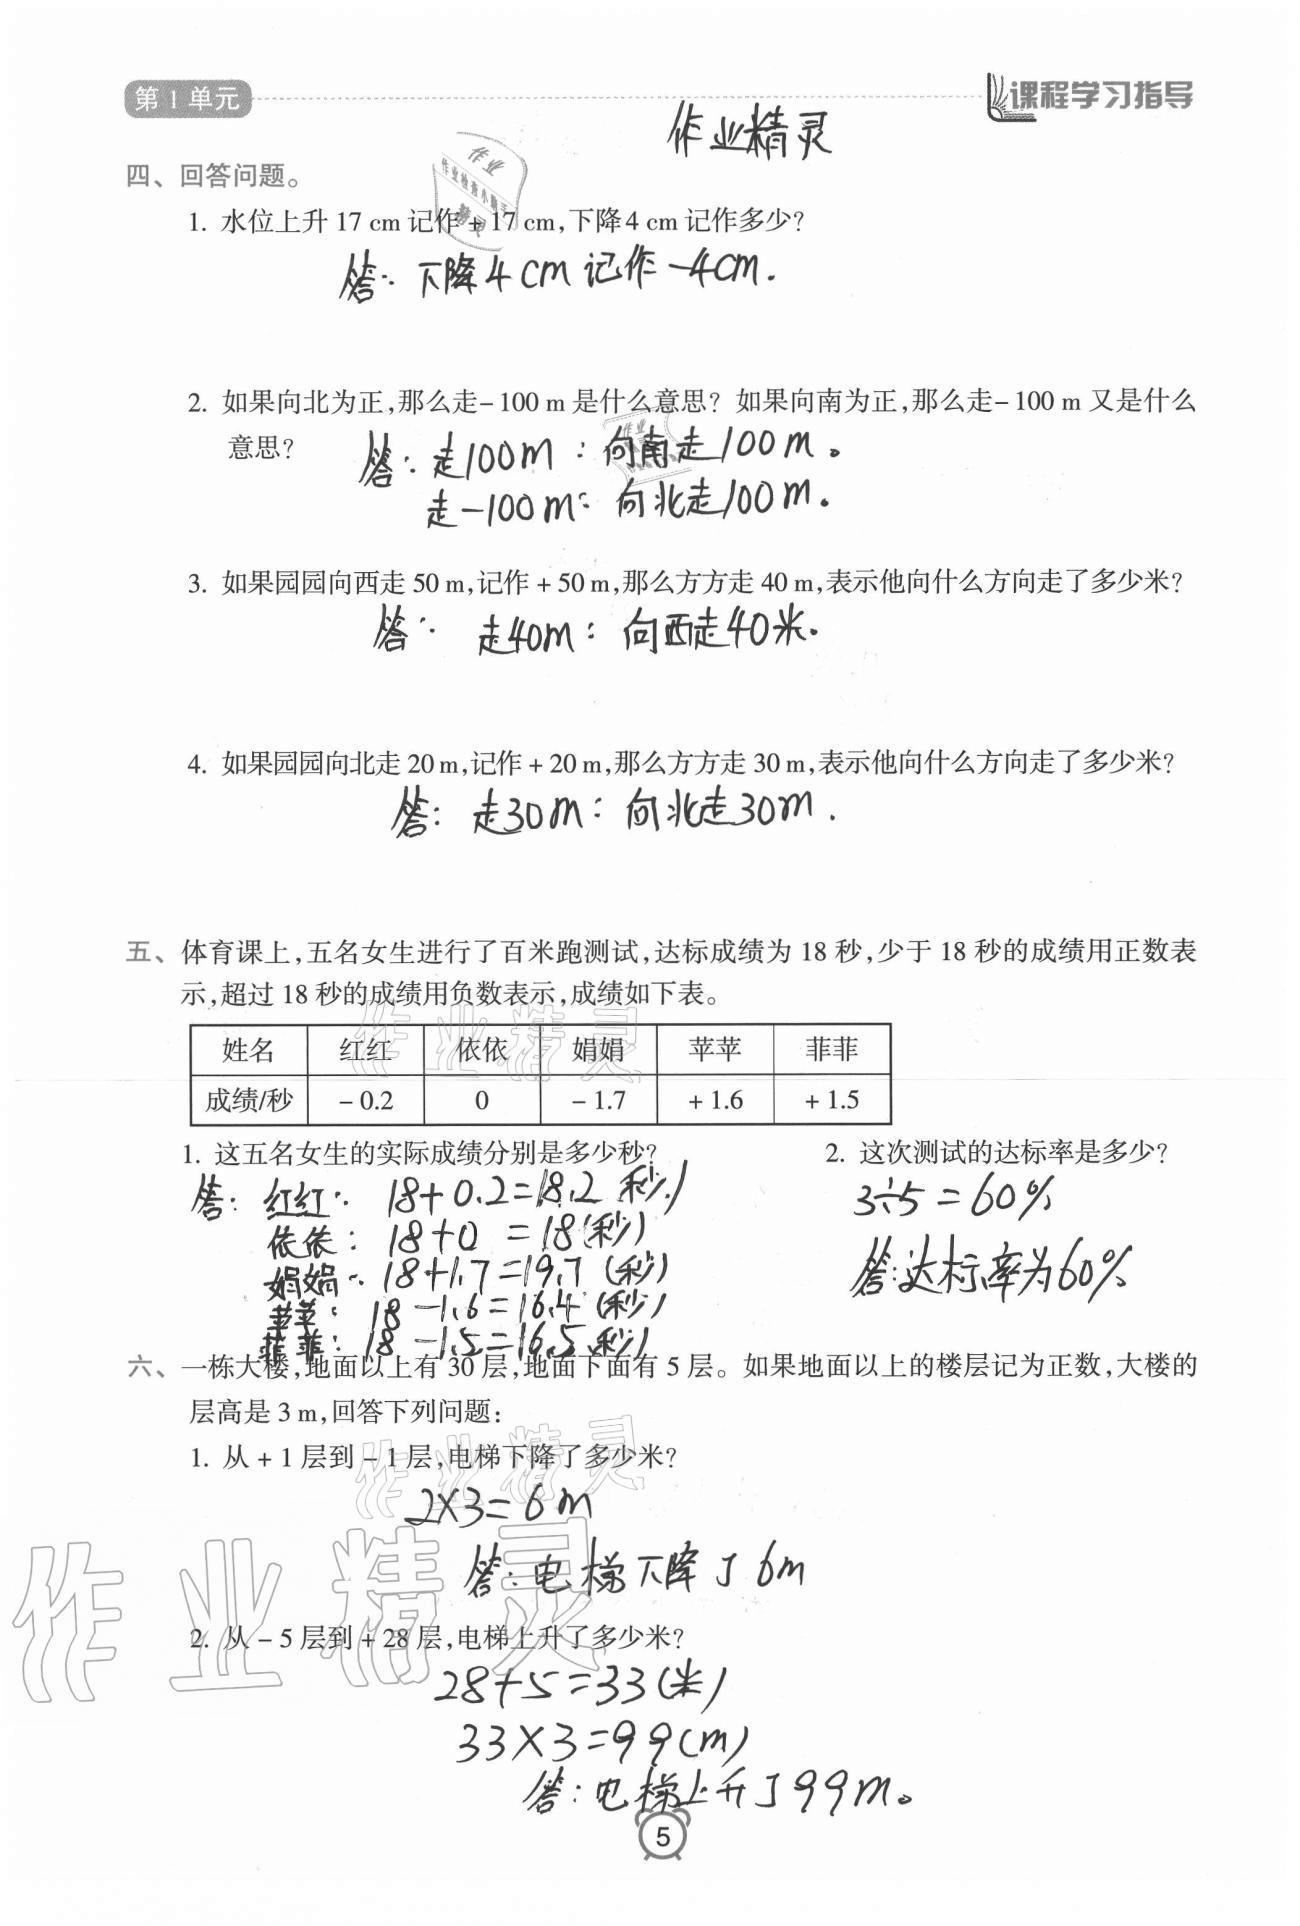 第1单元
课程学习指导
作业精灵
四、回答问题。
1. 水位上升 17 cm 记作 + 17 cm,下降 4 cm 记作多少?
答:下降4cm记作-4cm.
2. 如果向北为正,那么走- 100 m 是什么意思? 如果向南为正,那么走- 100 m 又是什么
意思?
答:走100m:向南走100m。
走-100m:向北走100m.
3. 如果园园向西走 50 m,记作 + 50 m,那么方方走 40 m,表示他向什么方向走了多少米?
答: 走40m:向西走40米.
4. 如果园园向北走 20 m,记作 + 20 m,那么方方走 30 m,表示他向什么方向走了多少米?
答: 走30m:向北走30m.
五、体育课上,五名女生进行了百米跑测试,达标成绩为 18 秒,少于 18 秒的成绩用正数表
示,超过 18 秒的成绩用负数表示,成绩如下表。
姓名 红红 依依 娟娟 苹苹 菲菲
成绩/秒 - 0.2 0 - 1.7 + 1.6 + 1.5
1. 这五名女生的实际成绩分别是多少秒?
答:红红: 18+0.2=18.2(秒)
依依: 18+0=18(秒)
娟娟: 18+1.7=19.7(秒)
苹苹: 18-1.6=16.4(秒)
菲菲: 18-1.5=16.5(秒)
2. 这次测试的达标率是多少?
3÷5=60%
答:达标率为60%
六、一栋大楼,地面以上有 30 层,地面下面有 5 层。如果地面以上的楼层记为正数,大楼的
层高是 3 m,回答下列问题:
1. 从 + 1 层到 - 1 层,电梯下降了多少米?
2×3=6m
答:电梯下降了6m
2. 从 - 5 层到 + 28 层,电梯上升了多少米?
28+5=33(米)
33×3=99(m)
答:电梯上升了99m。
5
作业
作业检查小助手
精灵
作业精灵
作业精灵
作业精灵